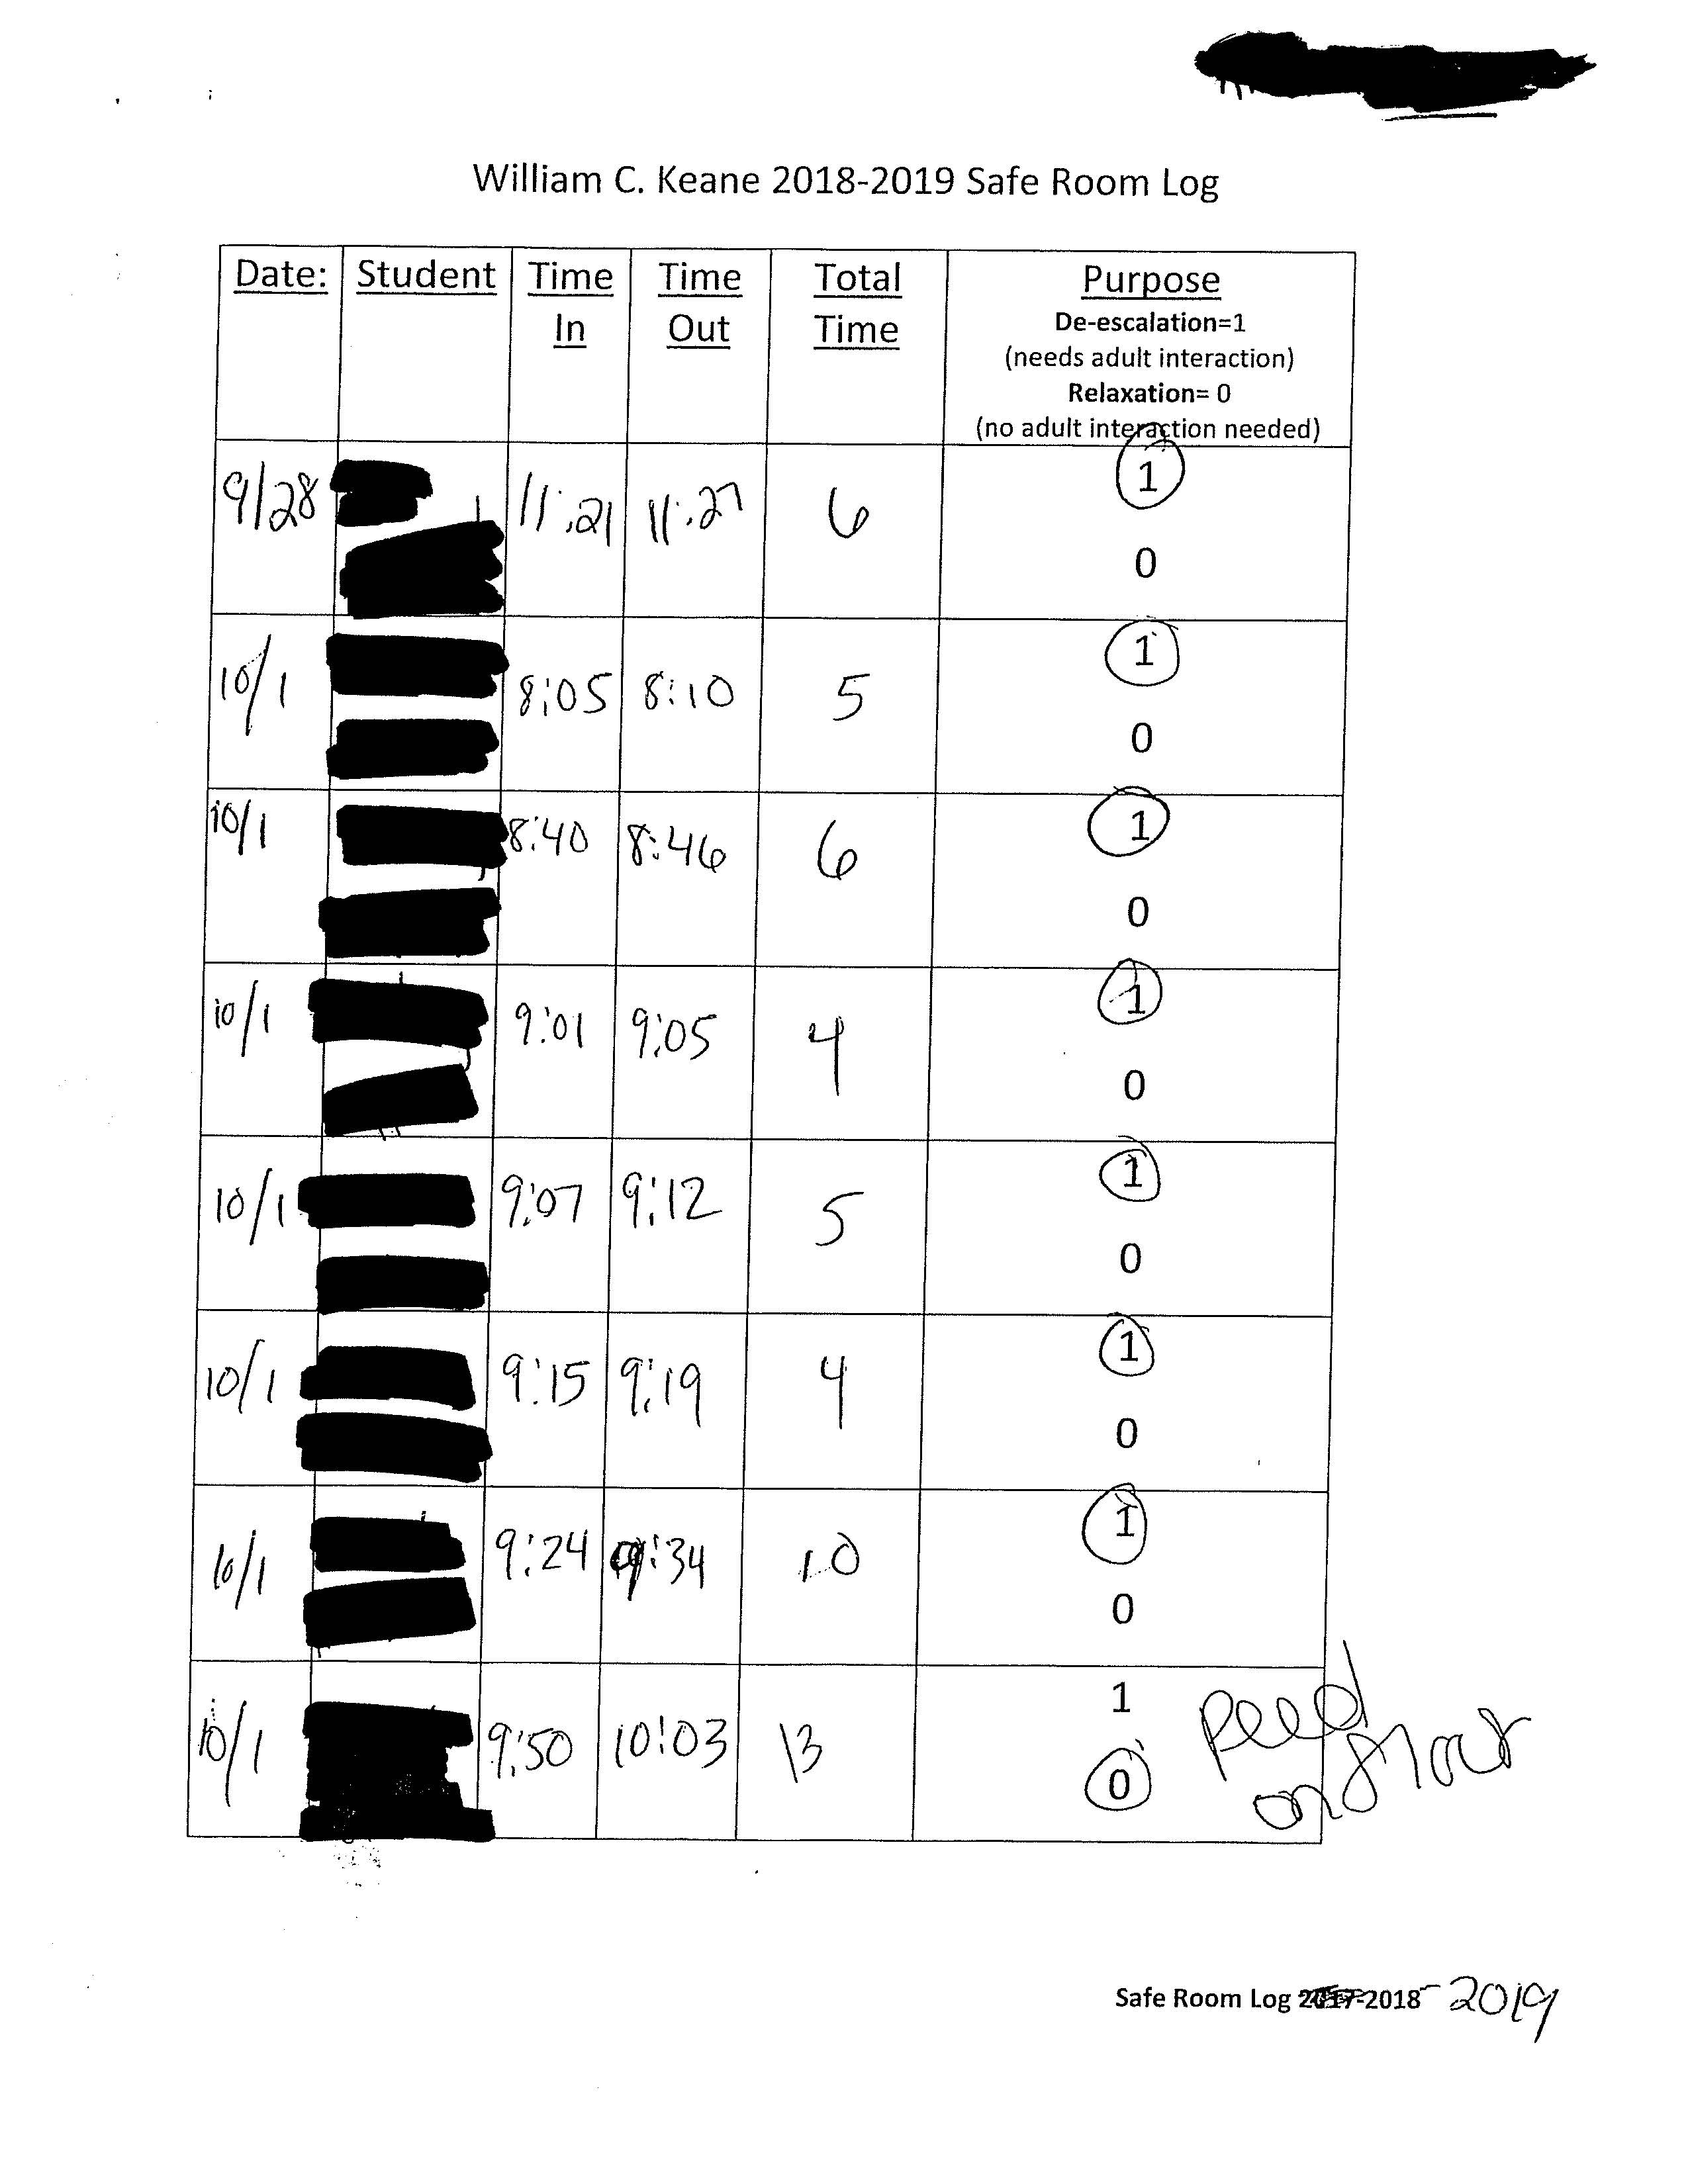 William C. Keane 2018-2019 Safe Room Log
Date: Student Time In Time Out Total Time Purpose
De-escalation=1
(needs adult interaction)
Relaxation= 0
(no adult interaction needed)
9/28 11:21 11:27 6 1
0
10/1 8:05 8:10 5 1
0
10/1 8:40 8:46 6 1
0
10/1 9:01 9:05 4 1
0
10/1 9:07 9:12 5 1
0
10/1 9:15 9:19 4 1
0
10/1 9:24 9:34 10 1
0
10/1 9:50 10:03 13 1
0
Peed
on floor
Safe Room Log 2017-2018 - 2019